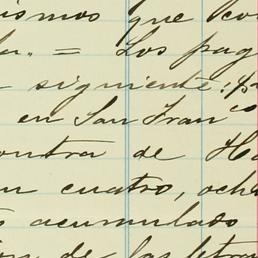 ismos que
la. = Los pag
siguiente: p
en San Fran co
contra de Ha
n cuatro, och
s acumulado
on de las letras